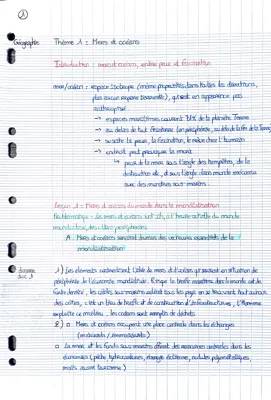 ①
Géographie Thème 1 : Mers et océans
Introduction : mers et océans, entre peur et fascination
mer/océan : espace isotrope (même propriétés dans toutes les directions,
plus aucun espace traversable), qui est en apparence pas
anthropisé
→ espaces maritimes couvrent 71% de la planète Terre
→ au delà de tout œkoumène (en périphérie, au delà de la fin de la Terre)
→ suscite la peur, la fascination, le rêve chez l'humain
→ endroit peut provoquer la mort
↳ peur de la mer sous l'angle des tempêtes, de la
destruction etc, et sous l'angle d'un monde inconnu
avec des monstres sous-marins.
Leçon 1 - Mers et océans du monde dans la mondialisation
Problématique : Les mers et océans sont-ils, à l'heure actuelle du monde
mondialisé, des citées périphériques
A. Mers et océans servent d'axes des vecteurs essentiels de la
mondialisation
dossier doc 1
1) Les éléments contredisant l'idée de mers et d'océans qui seraient en situation de
périphérie de l'économie mondialisée. Etape les traffic maritimes dans le monde est de
toute dernière, les câbles sous-marins relient tous les pays en se trouvant tout autour
des côtes, c'est un lieu de traffic et de construction d'infrastructures, l'Homme
exploite ce milieu. Les océans sont remplis de déchets.
2) a. Mers et océans occupent une place centrale dans les échanges
(matériels / immatériels)
b. La mer et les fonds sous-marins offrent des ressources centrales dans les
économies (pêche, hydrocarbures, énergie éolienne, nodules polymétalliques,
mais aussi tourisme)